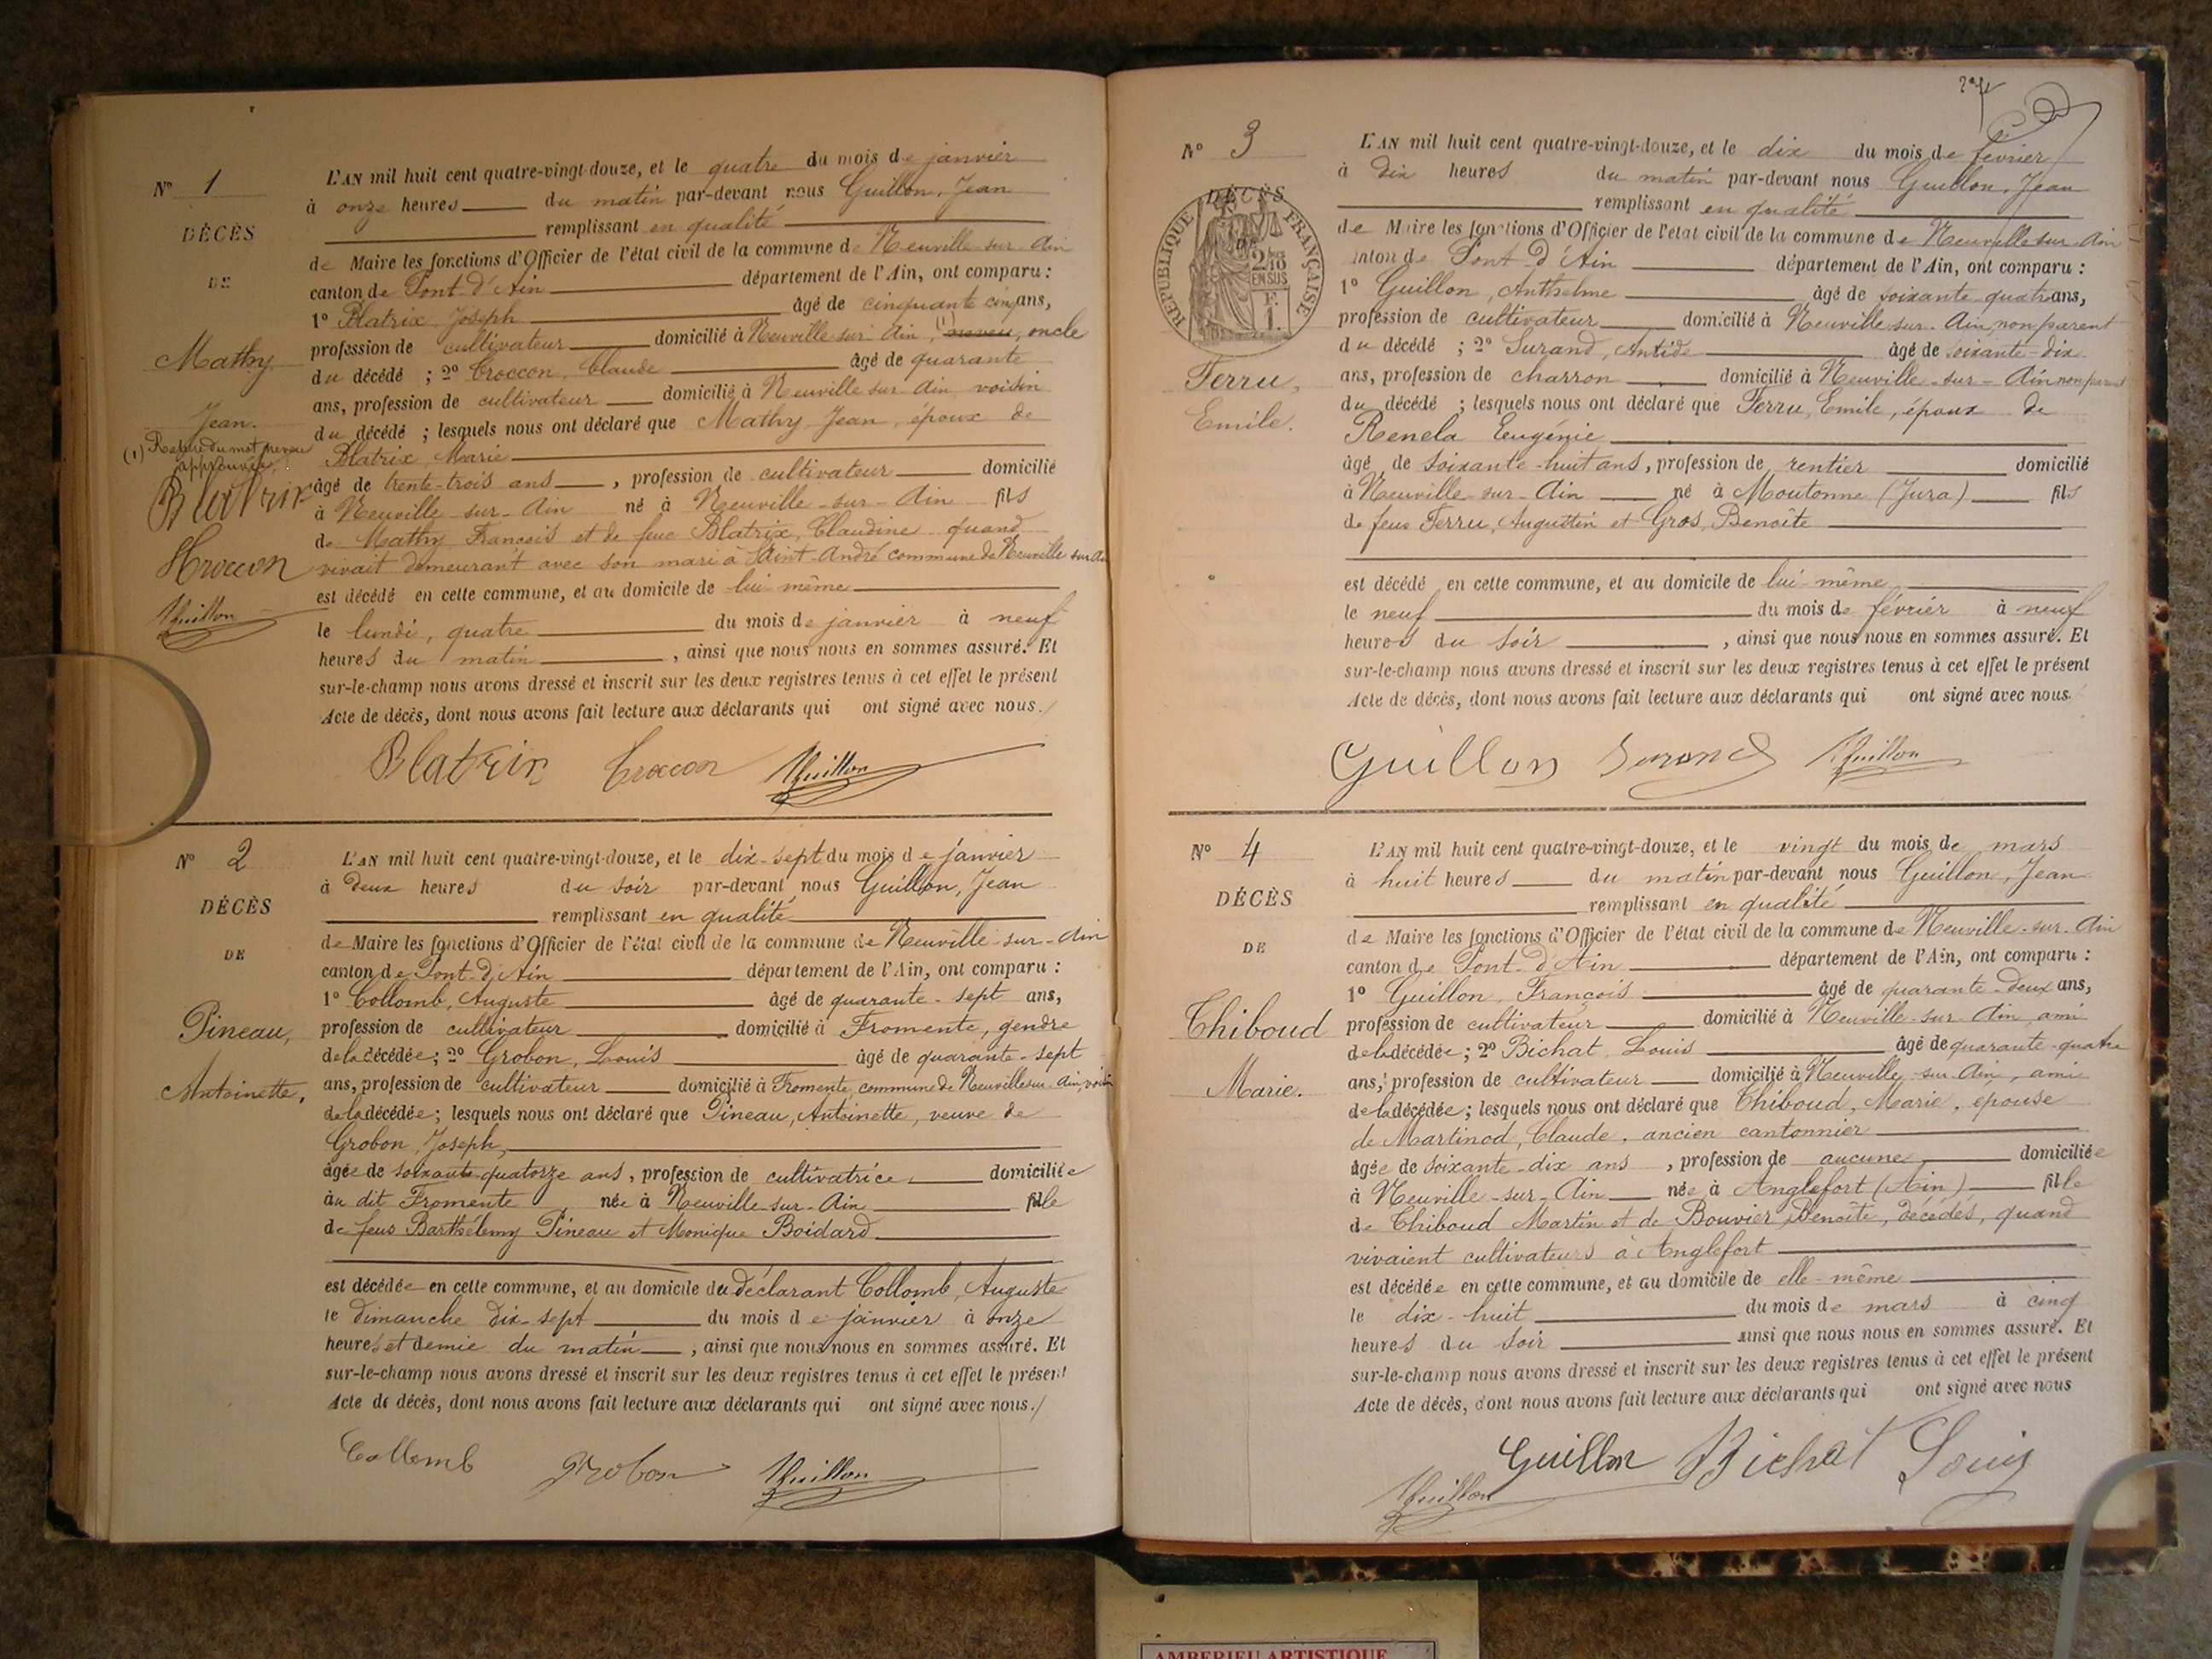 N° 1
DÉCÈS
DE
Mathy
Jean.
(1) Rature du mot neveu
approuvée.
Blatrix
Croccon
JGuillon
L'AN mil huit cent quatre-vingt-douze, et le quatre du mois de janvier
à onze heures du matin par-devant nous Guillon, Jean
remplissant en qualité
de Maire les fonctions d'Officier de l'état civil de la commune de Neuville-sur-Ain
canton de Pont-d'Ain département de l'Ain, ont comparu :
1° Blatrix Joseph âgé de cinquante cinq ans,
profession de cultivateur domicilié à Neuville-sur-Ain, (1) neveu, oncle
du décédé ; 2° Croccon, Claude âgé de quarante
ans, profession de cultivateur domicilié à Neuville-sur-Ain voisin
du décédé ; lesquels nous ont déclaré que Mathy, Jean, époux de
Blatrix, Marie
âgé de trente-trois ans, profession de cultivateur domicilié
à Neuville-sur-Ain né à Neuville-sur-Ain fils
de Mathy François et de feue Blatrix, Claudine quand
vivait demeurant avec son mari à Saint-André commune de Neuville sur Ain
est décédé en cette commune, et au domicile de lui-même
le lundi, quatre du mois de janvier à neuf
heures du matin, ainsi que nous nous en sommes assuré. Et
sur-le-champ nous avons dressé et inscrit sur les deux registres tenus à cet effet le présent
Acte de décès, dont nous avons fait lecture aux déclarants qui ont signé avec nous./
Blatrix Croccon JGuillon
N° 2
DÉCÈS
DE
Pineau,
Antoinette.
L'AN mil huit cent quatre-vingt-douze, et le dix-sept du mois de janvier
à deux heures du soir par-devant nous Guillon, Jean
remplissant en qualité
de Maire les fonctions d'Officier de l'état civil de la commune de Neuville-sur-Ain
canton de Pont-d'Ain département de l'Ain, ont comparu :
1° Collomb, Auguste âgé de quarante-sept ans,
profession de cultivateur domicilié à Fromente, gendre
de la décédée ; 2° Grobon, Louis âgé de quarante-sept
ans, profession de cultivateur domicilié à Fromente, commune de Neuville sur Ain, voisin
de la décédée ; lesquels nous ont déclaré que Pineau, Antoinette, veuve de
Grobon, Joseph,
âgée de soixante quatorze ans, profession de cultivatrice, domiciliée
au dit Fromente née à Neuville-sur-Ain fille
de feus Barthélemy Pineau et Monique Boidard
est décédée en cette commune, et au domicile du déclarant Collomb, Auguste
le dimanche dix-sept du mois de janvier à onze
heures et demie du matin, ainsi que nous nous en sommes assuré. Et
sur-le-champ nous avons dressé et inscrit sur les deux registres tenus à cet effet le présent
Acte de décès, dont nous avons fait lecture aux déclarants qui ont signé avec nous./
Collomb Grobon JGuillon
N° 3
DÉCÈS
RÉPUBLIQUE FRANÇAISE
2/10
EN SUS
F.
1.
Ferru,
Emile.
L'AN mil huit cent quatre-vingt-douze, et le dix du mois de février
à dix heures du matin par-devant nous Guillon, Jean
remplissant en qualité
de Maire les fonctions d'Officier de l'état civil de la commune de Neuville sur Ain
canton de Pont-d'Ain département de l'Ain, ont comparu :
1° Guillon, Anthelme âgé de soixante quatre ans,
profession de cultivateur domicilié à Neuville-sur-Ain, non parent
du décédé ; 2° Surand, Antide âgé de soixante-dix
ans, profession de charron domicilié à Neuville-sur-Ain non parent
du décédé ; lesquels nous ont déclaré que Ferru, Emile, époux de
Renela Eugénie
âgé de soixante-huit ans, profession de rentier domicilié
à Neuville-sur-Ain né à Moutonne (Jura) fils
de feus Ferru, Augustin et Gros, Benoîte
est décédé en cette commune, et au domicile de lui-même
le neuf du mois de février à neuf
heures du soir, ainsi que nous nous en sommes assuré. Et
sur-le-champ nous avons dressé et inscrit sur les deux registres tenus à cet effet le présent
Acte de décès, dont nous avons fait lecture aux déclarants qui ont signé avec nous.
Guillon Surand JGuillon
N° 4
DÉCÈS
DE
Thiboud
Marie.
L'AN mil huit cent quatre-vingt-douze, et le vingt du mois de mars
à huit heures du matin par-devant nous Guillon, Jean
remplissant en qualité
de Maire les fonctions d'Officier de l'état civil de la commune de Neuville-sur-Ain
canton de Pont-d'Ain département de l'Ain, ont comparu :
1° Guillon, François âgé de quarante-deux ans,
profession de cultivateur domicilié à Neuville-sur-Ain, ami
de la décédée ; 2° Bichat Louis âgé de quarante-quatre
ans, profession de cultivateur domicilié à Neuville-sur-Ain, ami
de la décédée ; lesquels nous ont déclaré que Thiboud, Marie, épouse
de Martinod, Claude, ancien cantonnier
âgée de soixante-dix ans, profession de aucune domiciliée
à Neuville-sur-Ain née à Anglefort (Ain) fille
de Thiboud Martin et de Bouvier, Benoîte, décédés, quand
vivaient cultivateurs à Anglefort
est décédée en cette commune, et au domicile de elle-même
le dix-huit du mois de mars à cinq
heures du soir ainsi que nous nous en sommes assuré. Et
sur-le-champ nous avons dressé et inscrit sur les deux registres tenus à cet effet le présent
Acte de décès, dont nous avons fait lecture aux déclarants qui ont signé avec nous
JGuillon Guillon Bichat Louis
AMBERIEU ARTISTIQUE